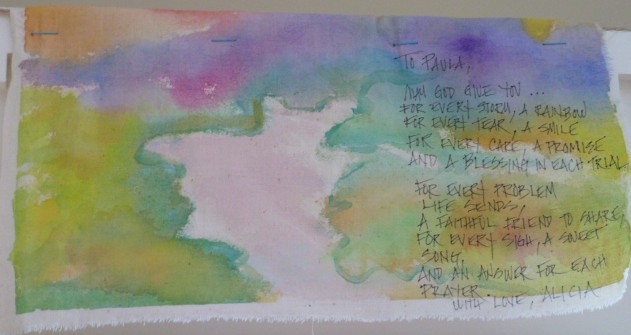 TO PAULA,
MAY GOD GIVE YOU ...
FOR EVERY STORM, A RAINBOW
FOR EVERY TEAR, A SMILE
FOR EVERY CARE, A PROMISE
AND A BLESSING IN EACH TRIAL
FOR EVERY PROBLEM
LIFE SENDS,
A FAITHFUL FRIEND TO SHARE,
FOR EVERY SIGH, A SWEET
SONG,
AND AN ANSWER FOR EACH
PRAYER.
WITH LOVE, ALICIA